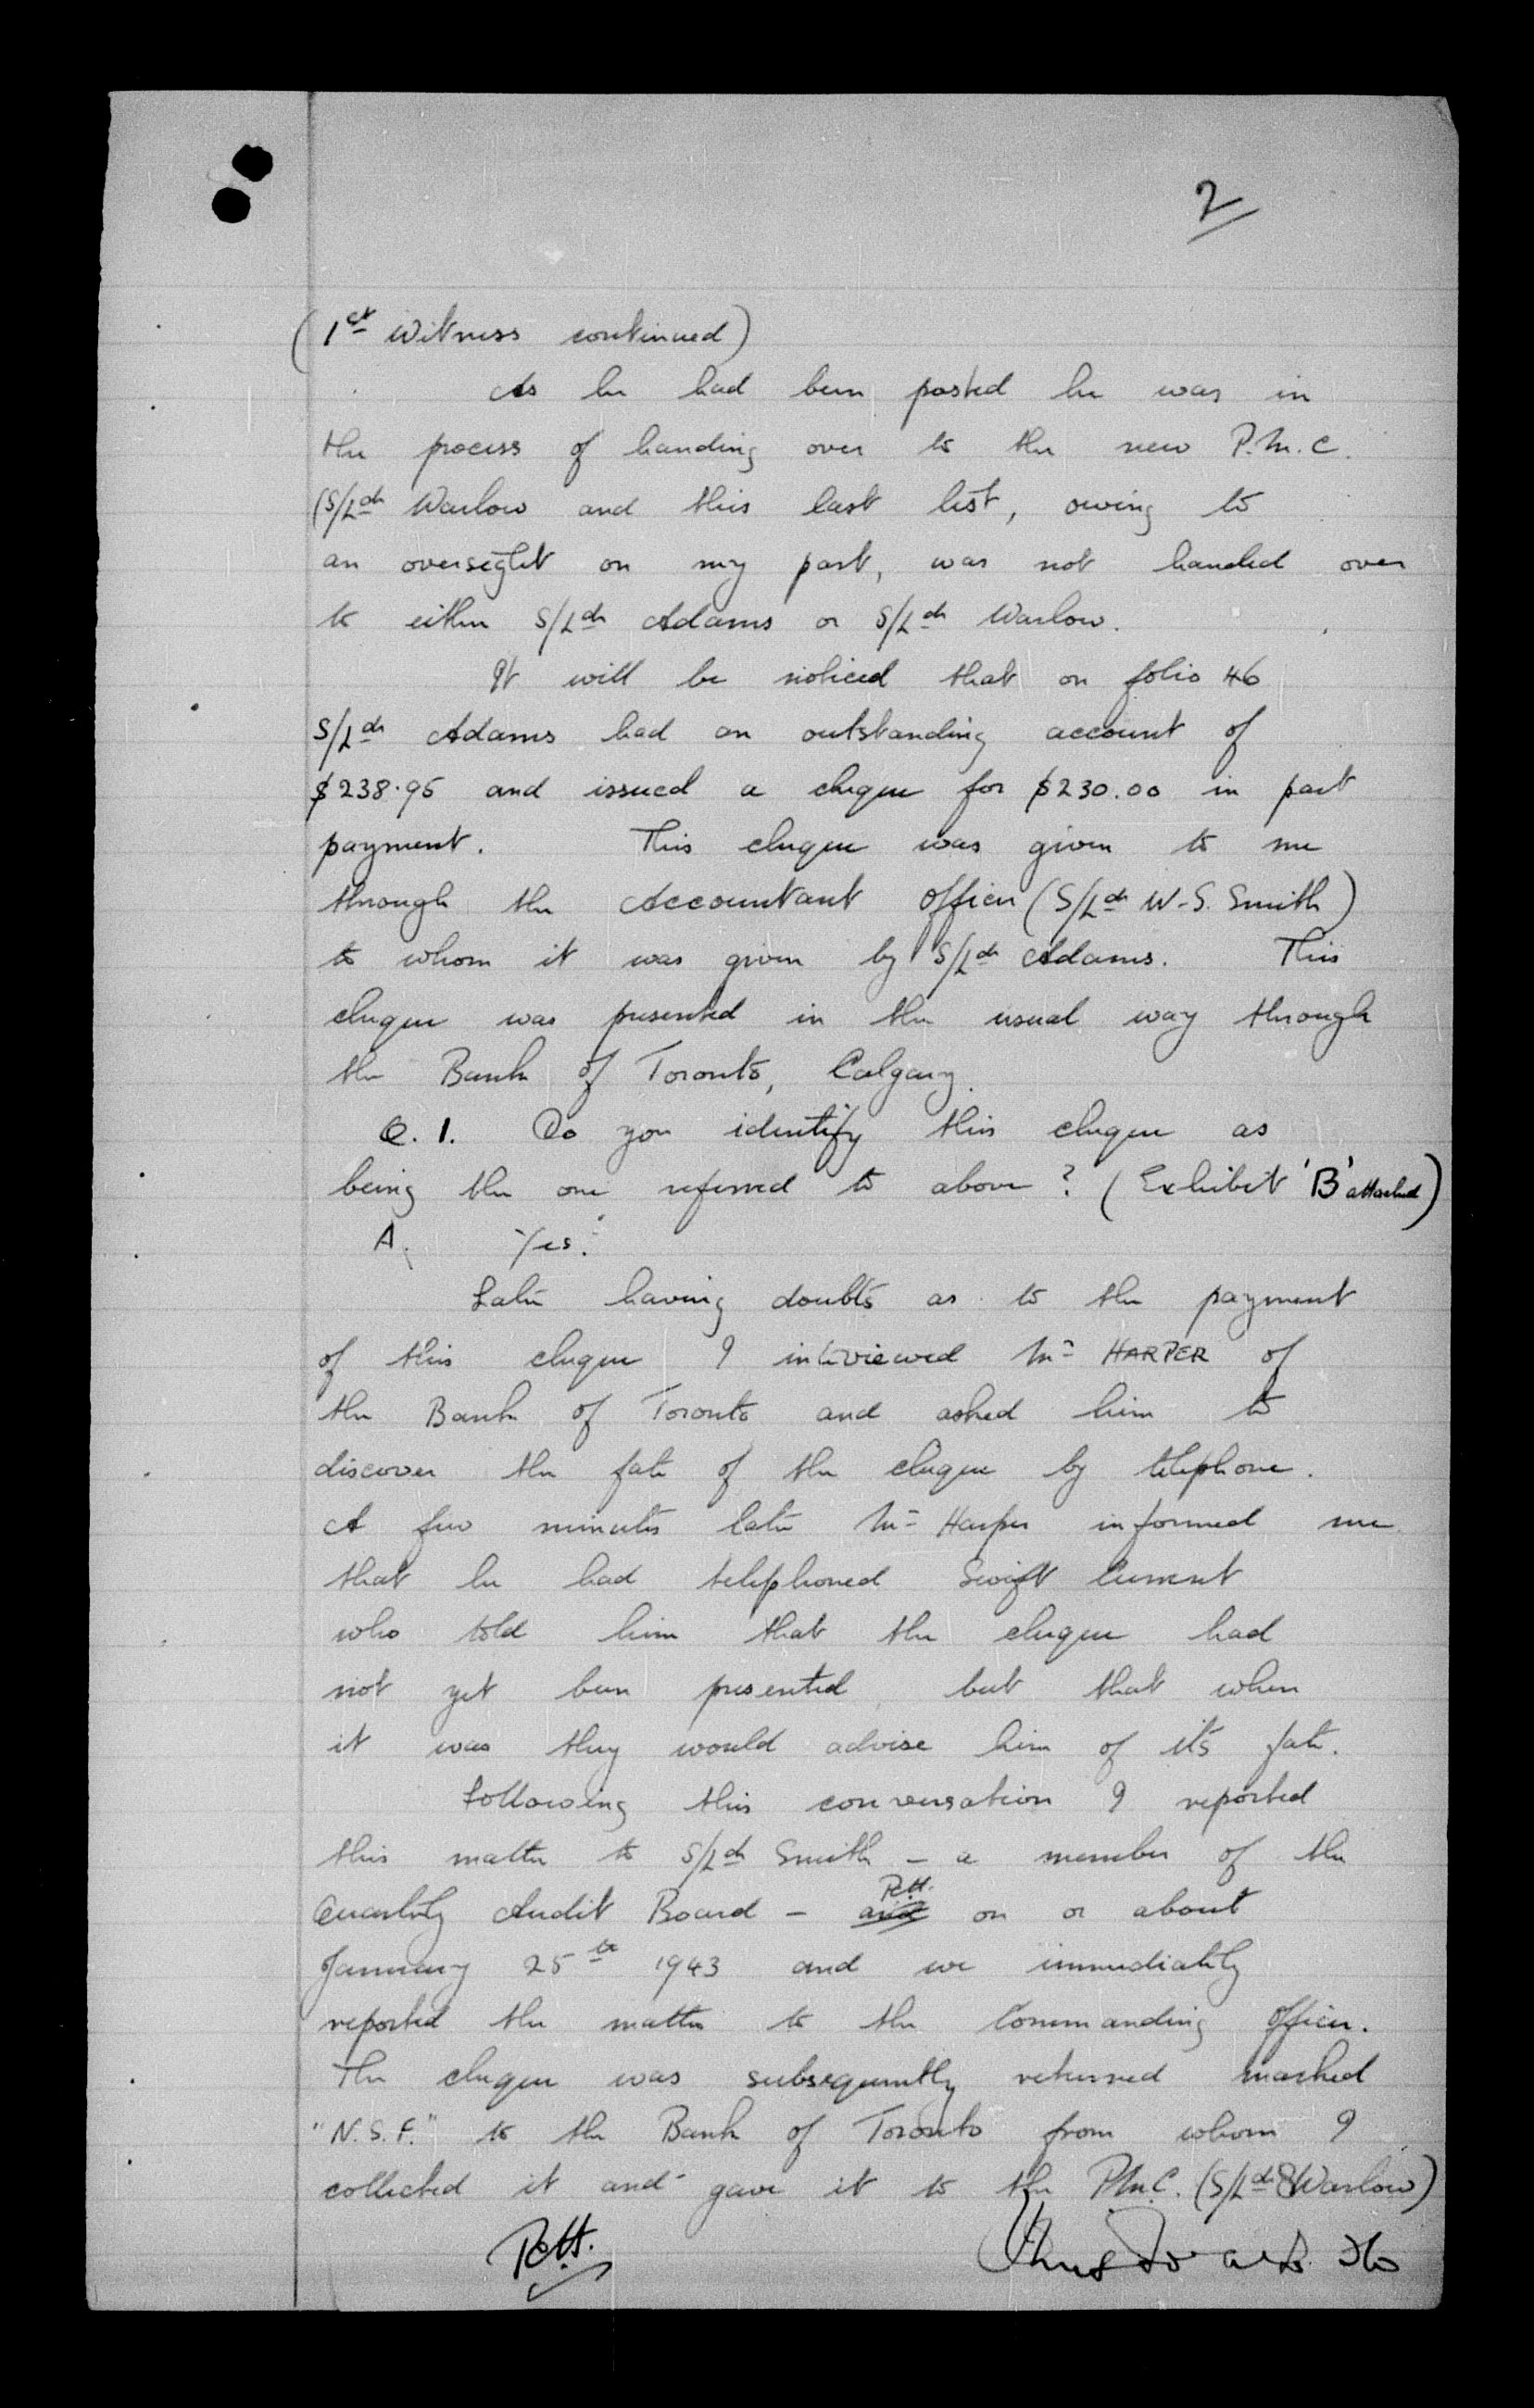 2
(1st Witness continued)
As he had been posted he was in
the process of handing over to the new P.M.C.
(S/Ldr Warlow and this last list, owing to
an oversight on my part, was not handed over
to either S/Ldr Adams or S/Ldr Warlow.
It will be noticed that on folio 46
S/Ldr Adams had an outstanding account of
$238.95 and issued a cheque for $230.00 in part
payment. This cheque was given to me
through the Accountant Officer (S/Ldr W.S. Smith)
to whom it was given by S/Ldr Adams. This
cheque was presented in the usual way through
the Bank of Toronto, Calgary.
Q.1. Do you identify this cheque as
being the one referred to above? (Exhibit 'B' attached)
A. Yes.
Later having doubts as to the payment
of this cheque I interviewed Mr HARPER of
the Bank of Toronto and asked him to
discover the fate of the cheque by telephone.
A few minutes later Mr Harper informed me
that he had telephoned Swift Current
who told him that the cheque had
not yet been presented, but that when
it was they would advise him of its fate.
Following this conversation I reported
this matter to S/Ldr Smith – a member of the
Quarterly Audit Board – and on or about
January 25th 1943 and we immediately
reported the matter to the Commanding Officer.
The cheque was subsequently returned marked
"N.S.F." to the Bank of Toronto from whom I
collected it and gave it to the PMC. (S/Ldr Warlow)